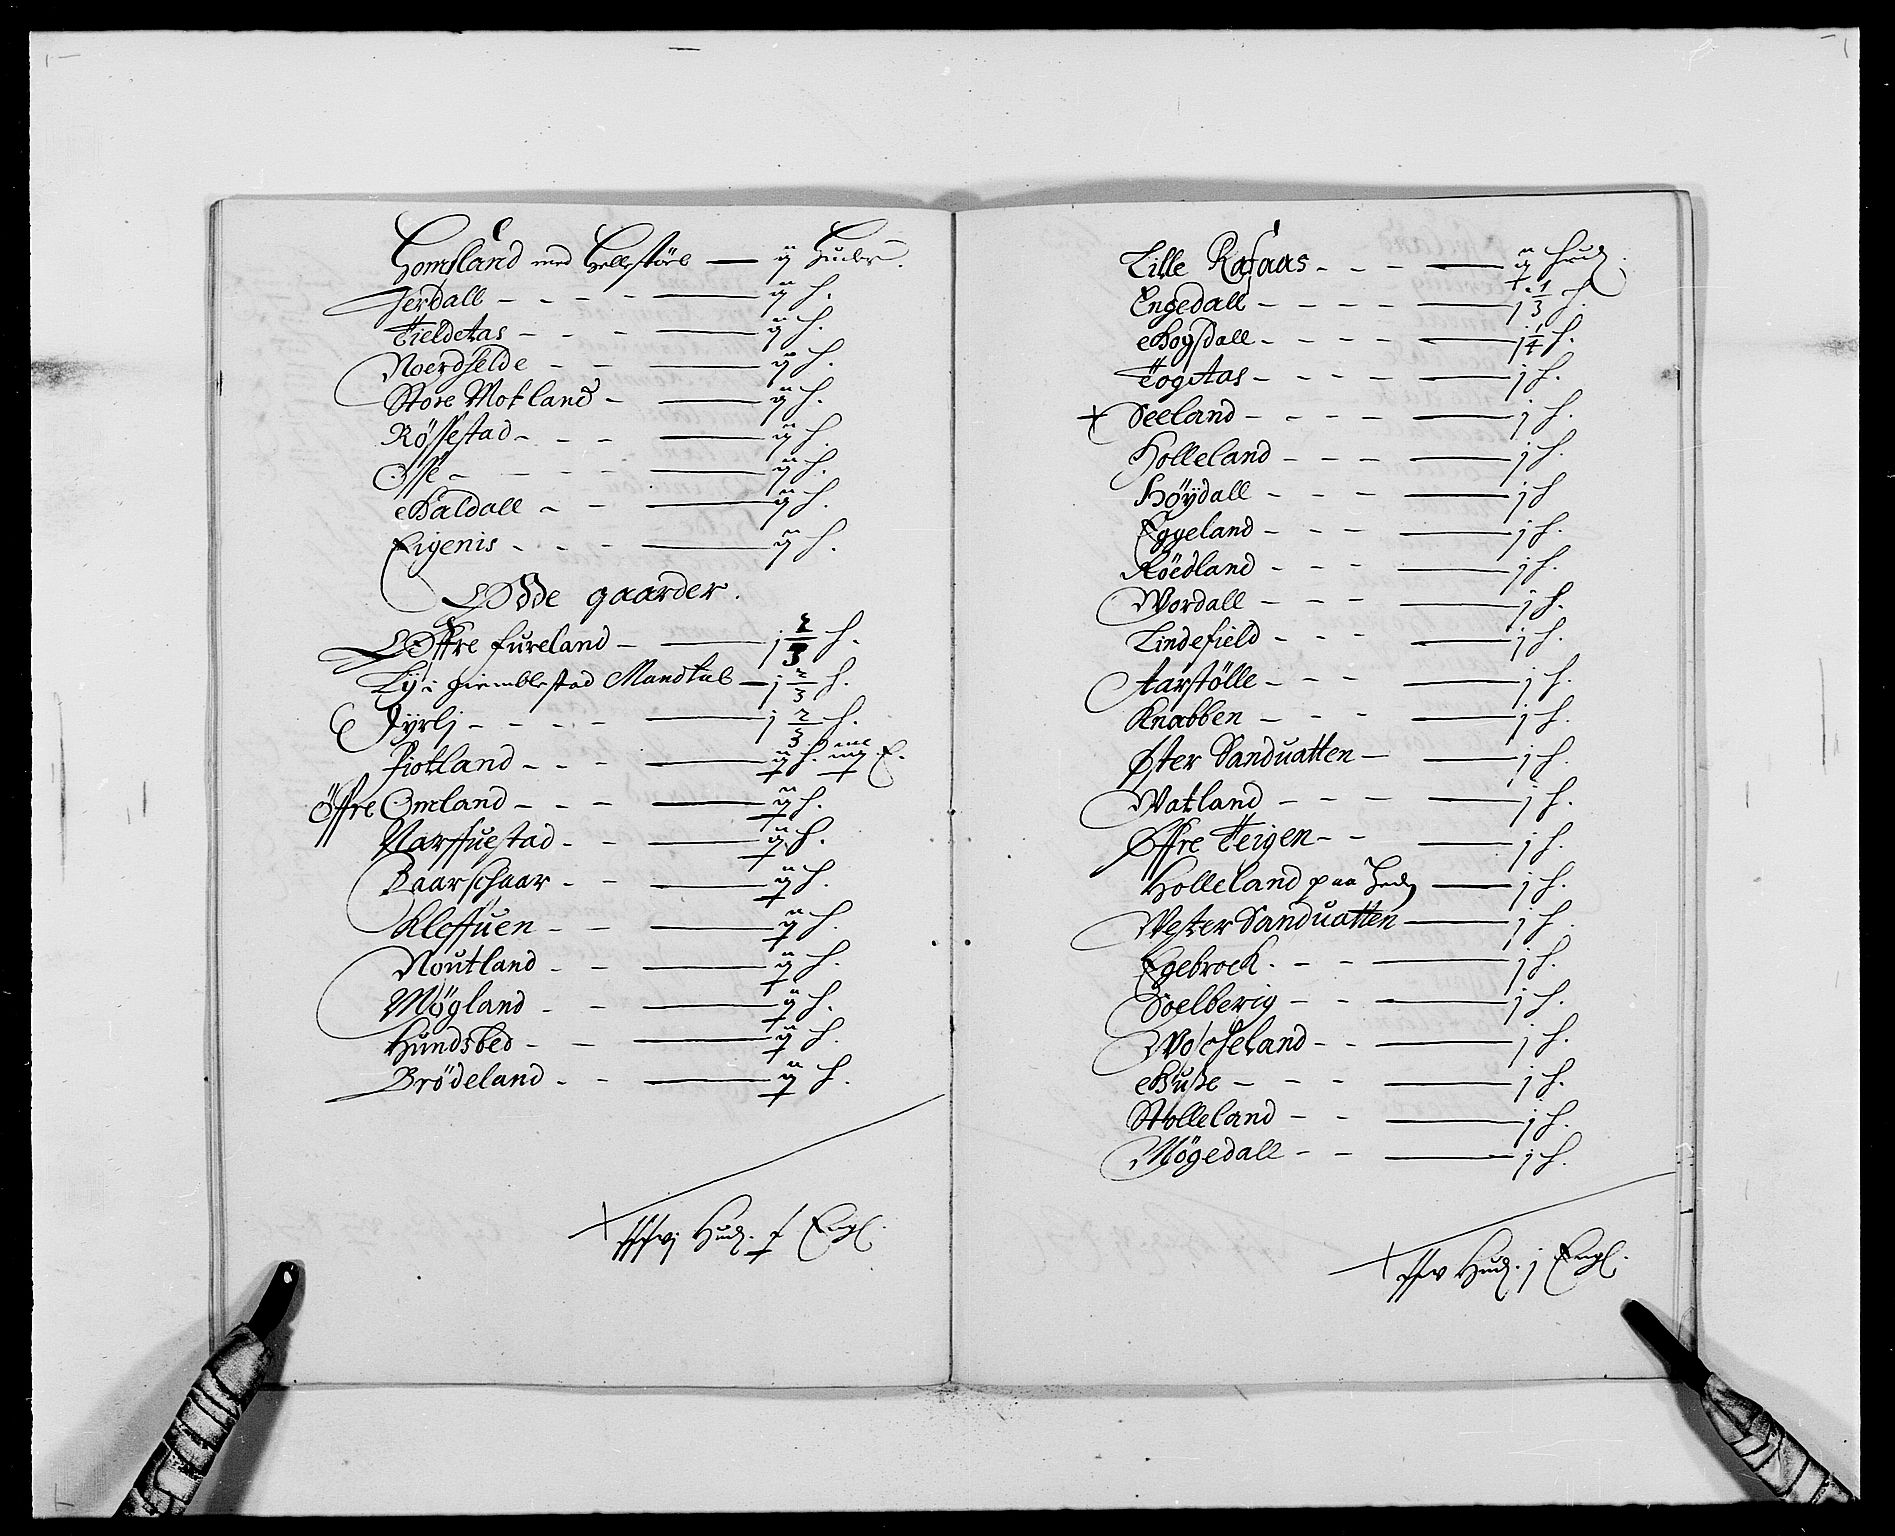 Homsland med Hellestöel — ij Huder.
Jerdall - - - - — ij h.
Fieldetas - - - — ij h.
Noerdhelde - - — ij h.
Store Mokland - — ij h.
Rössestad - - - — ij h.
Osse - - - - — ij h.
Baldall - - — ij h.
Eigenis - - - — ij h.
Øde gaarder.
Øffre fureland - — j 2/3 h.
Lÿ i giemblestad Mandtal — j 2/3 h.
Jyrlj - - - - — j 2/3 h.
Fiotland - - - — ij h. iiij E.
Öffre Omland - - - — ij h.
Narffuestad - - — ij h.
Baarschaar - - — ij h.
Kleffuen - - — ij h.
Noutland - - — ij h.
Mögland - - — ij h.
Hundsbed - - — ij h.
Brödeland - - — ij h.
Hud. Engl.
Lille Rafaas - - - — ij hud.
Engedall - - - - — j 1/3 h.
Bogsdall - - - - — j 1/4 h.
Fogetas - - - - — j h.
+ Seeland - - - - — j h.
Holleland - - - — j h.
Höydall - - - — j h
Eggeland - - - — j h.
Röedland - - - — j h.
Wordall - - - — j h.
Lindefield - - - — j h.
Aarstölle - - - — j h.
Knabben - - - — j h.
Øster Sanduatten — — j h.
Watland - - - — j h.
Øffre Feigen - - — j h.
Holleland paa — j h.
Wester Sanduatten — j h.
Egebrock. - - — j h.
Soelberig - - — j h.
Woscheland - - — j h.
Buske - - - — j h.
Stolleland - - — j h.
Mögedall - - — j h.
Hud. j Engl.